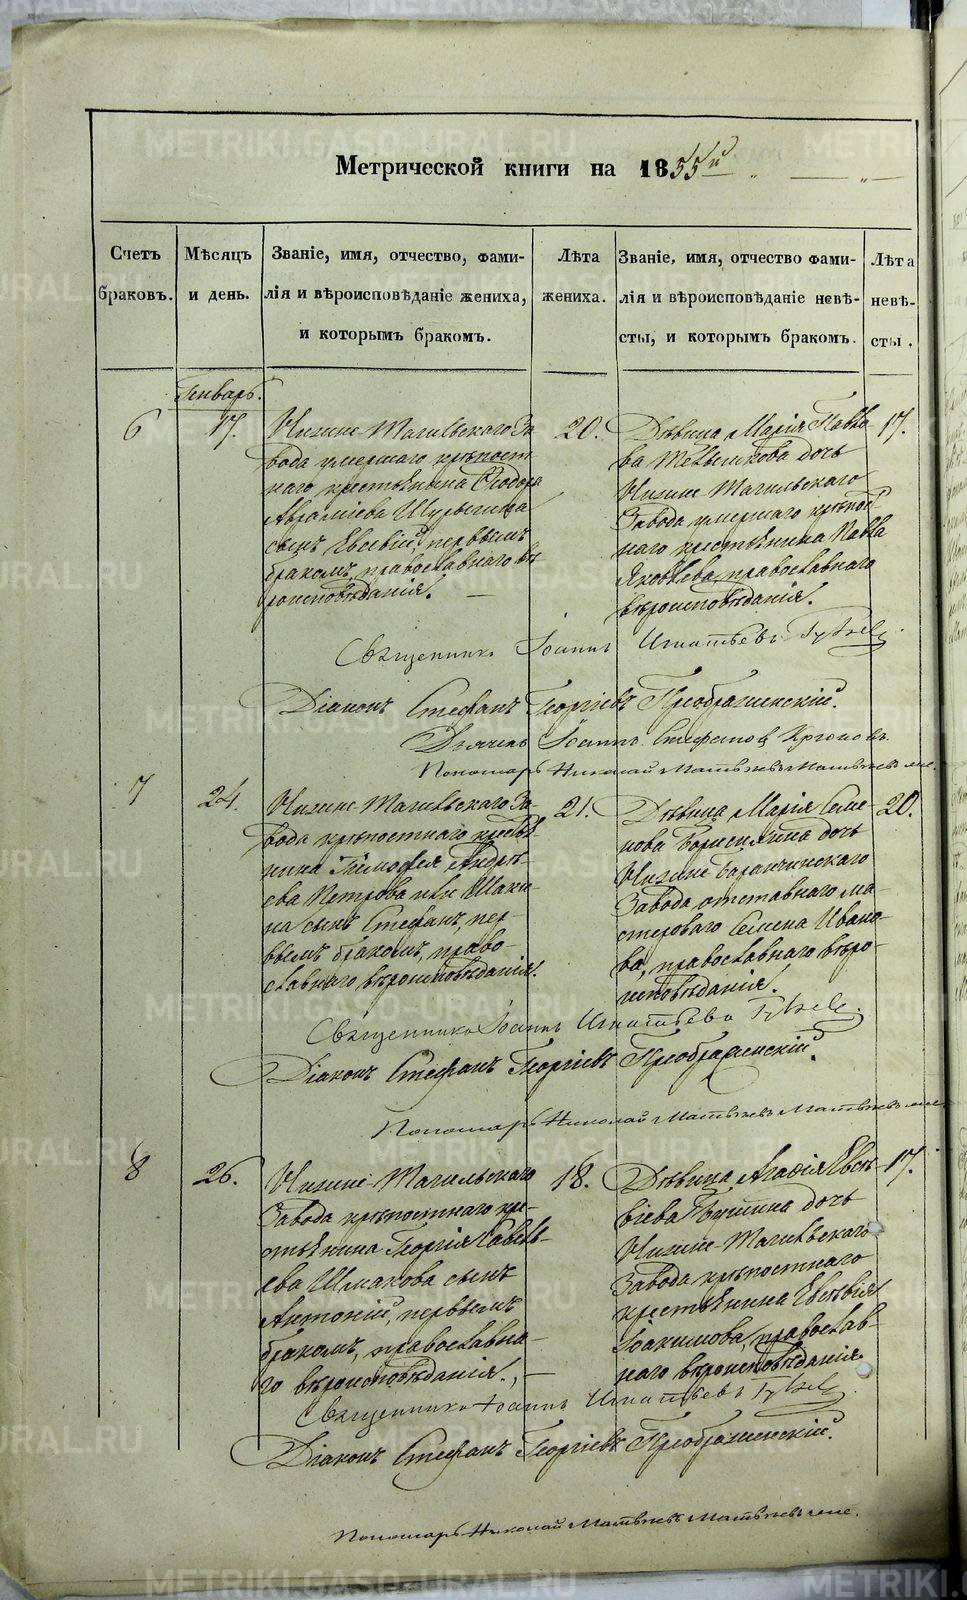 Метрической книги на 1855й
Счетъ браковъ.
Мѣсяцъ и день.
Званіе, имя, отчество, фами-
лія и вѣроисповѣданіе жениха,
и которымъ бракомъ.
Лѣта жениха.
Званіе, имя, отчество фами-
лія и вѣроисповѣданіе невѣ-
сты, и которымъ бракомъ.
Лѣта невѣ-
сты.
Генварь.
6
17.
Нижне-Тагильскаго За-
вода умершаго крѣпост
наго крестьянина Ѳеодора
Аврамиева
сынъ Евсевій, первымъ
бракомъ, православнаго вѣ
роисповѣданія.
20.
Дѣвица Марія Павло
ва дочь
Нижне Тагильскаго
Завода умершаго крѣпост
наго крестьянина Павла
Яковлева, православнаго
вѣроисповѣданія.
17.
Священникъ Іоаннъ Игнатьевъ
Діаконъ Стефанъ Георгіевъ Преображенскій.
Дьячекъ Іоаннъ Стефановъ
Пономарь Николай Матвѣевъ
7
24.
Нижне Тагильскаго За-
вода крѣпостнаго кресть
нина Тимофея Андрѣ-
ева Петрова или Шаки
на сынъ Стефанъ, пер-
вымъ бракомъ, право-
славнаго вѣроисповѣданія.
21.
Дѣвица Марія Семе-
нова дочь
Нижне Баранчинскаго
Завода отставнаго ма-
стероваго Семена Ивано-
ва, православнаго вѣро-
исповѣданія.
20.
Священникъ Іоаннъ Игнатьевъ
Діаконъ Стефанъ Георгіевъ Преображенскій.
Пономарь Николай Матвѣевъ
8
26.
Нижне-Тагильскаго
Завода крѣпостнаго кре-
стьянина Георгія Савель-
ева Шмакова сынъ
Антоній, первымъ
бракомъ, православна-
го вѣроисповѣданія.
18.
Дѣвица Агафія Евсѣ-
віева дочь
Нижне-Тагильскаго
Завода крѣпостнаго
крестьянина Евсѣвія
Іоакимова, православ-
наго вѣроисповѣданія
17.
Священникъ Іоаннъ Игнатьевъ
Діаконъ Стефанъ Георгіевъ Преображенскій.
Пономарь Николай Матвѣевъ
METRIKI.GASO-URAL.RU